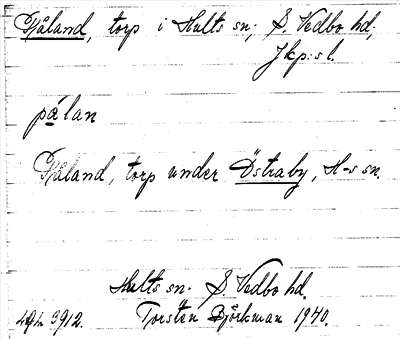 Påland, torp i Hults sn; S. Vedbo hd;
Jkp:s l.
pálan
Påland, torp under Östraby, H-s sn.
Hults sn. S Vedbo hd.
3912. Torsten Björkman 1940.